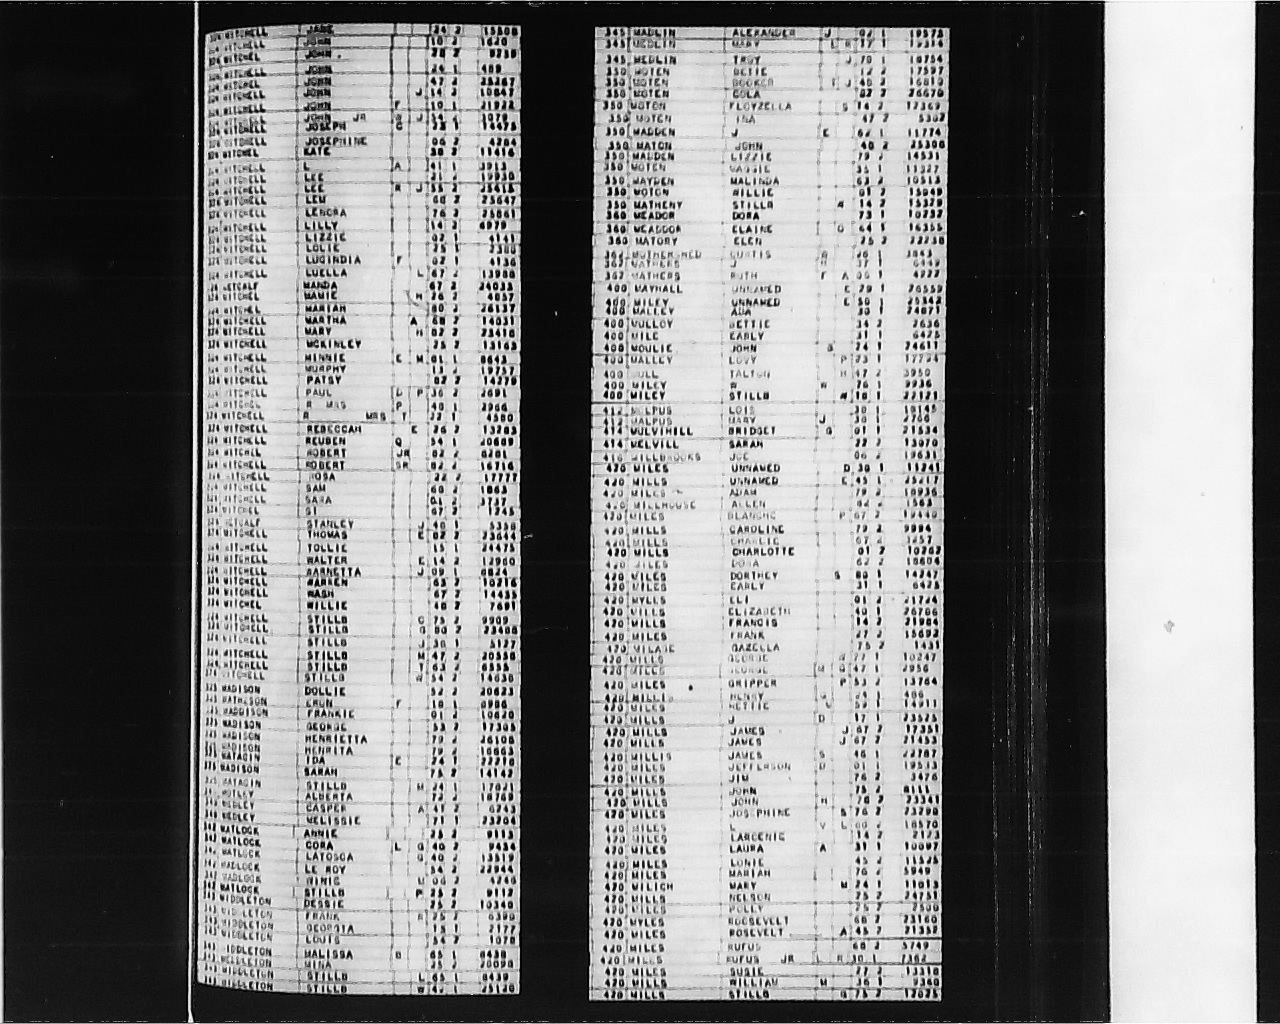 324 MITCHELL JANE 24 2 15508
324 MITCHELL JOHN 10 2 1620
324 MITCHEL JOHN 78 2
324 MITCHELL JOHN 24 1 489
324 MITCHELL JOHN 47 2
324 MITCHELL JOHN J 14 2 10847
324 MITCHELL JOHN F 10 1 21922
324 MITCHELL JOHN JR
324 MITCHELL JOSEPH C 14475
324 MITCHELL JOSEPHINE 06 2 4284
324 MITCHEL KATE 30 2 11416
324 MITCHELL L A 41 1 3913
324 MITCHELL LEE 21 2 19930
324 MITCHELL LEE R J 55 2 25415
324 MITCHELL LEM 60 2 25647
324 MITCHELL LENORA 76 2 25861
324 MITCHELL LILLY 14 2 6979
324 MITCHELL LIZZIE 02 1 4141
324 MITCHELL LOLIE 25 1 2380
324 MITCHELL LUCINDIA F 02 1 4136
324 MITCHELL LUELLA L 67 2 13988
324 METCALF MANDA 67 2 24033
324 MITCHEL MAMIE H 26 2 4057
324 MITCHELL MARIAH 80 2 26137
324 MITCHELL MARTHA A 68 2 14031
324 MITCHELL MARY H 82 2 23418
324 MITCHELL MCKINLEY 25 2 13163
324 MITCHELL MINNIE E M 01 1 8643
324 MITCHELL MURPHY 13 2 19757
324 MITCHELL PATSY 02 2 14279
324 MITCHELL PAUL D P 36 2 2691
324 MITCHEL R MRS P 40 1 2966
324 MITCHELL R MRS T 22 1 4580
324 MITCHELL REBECCAH E 26 2 13283
324 MITCHELL REUBEN Q 54 1 20689
324 MITCHELL ROBERT JR 02 2 6201
324 MITCHELL ROBERT SR 82 2 16716
324 MITCHELL ROSA 22 2 17777
324 MITCHELL SAM 60 2 1863
324 MITCHELL SARA 01 2 3737
324 MITCHEL SI 67 2 1245
324 METCALF STANLEY J 40 1 5358
324 MITCHELL THOMAS E 82 2 23644
324 MITCHELL TOLLIE 15 1 24475
324 MITCHELL WALTER E 14 2 12960
324 MITCHELL WARNETTA J 09 1 8824
324 MITCHELL WARREN 63 2 10216
324 MITCHELL WASH 67 2 14435
324 MITCHEL WILLIE 40 2 7691
324 MITCHELL STILLB C 75 2 9909
324 MITCHELL STILLB G 80 2 23408
324 MITCHELL STILLB J 30 1 5127
324 MITCHELL STILLB M 47 2 20558
324 MITCHELL STILLB T 63 2 8558
324 MITCHELL STILLB W 54 2 14636
325 MADISON DOLLIE 52 2 20623
325 MATHESON ERON F 18 1 8986
325 MADDISON FRANKIE 01 2 10620
325 MADISON GEORGE 53 2 17305
325 MADISON HENRIETTA 79 2 26108
325 MADISON HENRITA 79 2 16663
325 MATAGIN IDA E 24 1 22210
325 MADISON SARAH 75 2 14142
325 MATAGIN STILLB M 24 1 17021
ALBERTA 72 2 18769
340 MEDLEY CASPER A 41 2 6243
340 MEDLEY MELISSIE 71 1 23204
342 MATLOCK ANNIE 25 2 9113
342 MATLOCK CORA L G 40 2 9434
342 MATLOCK LATOSCA G 40 2 13519
342 MADLOCK LE ROY 54 2 22944
342 MADLOCK 4266
342 MATLOCK STILLB P 25 2 9112
343 MIDDLETON DESSIE 25 2 10340
343 MIDDLETON FRANK R 25 2 6390
343 MIDDLETON GEORGIA 15 1 2177
343 MIDDLETON LOUIS 54 2 1078
343 MIDDLETON MALISSA B 65 1 8438
343 MIDDLETON NINA 25 2 20098
343 MIDDLETON STILLB L 65 1 8439
343 MIDDLETON STILLB W 42 1 25120
345 MADLIN ALEXANDER J 02 1 19572
345 MEDLIN MARY L R 17 1
345 MEDLIN TROY J 70 1 18754
350 MOTEN BETTIE 12 2 17597
350 MOTEN BOOKER T J 40 2 16810
350 MOTEN COLA 82 2 26670
350 MOTON FLOYZELLA S 14 2 12369
350 MOTON INA 47 2 5302
350 MADDEN J E 62 1 11774
350 MATON JOHN 40 2 25300
350 MADDEN LIZZIE 79 2 14531
350 MOTEN MAGGIE 35 1 11327
350 MAYDEN MALINDA 63 2 10513
350 MOTON WILLIE 01 2 15949
350 MATHENY STILLB W 14 2 15329
360 MEADOR DORA 73 1 10737
360 MEADDOR ELAINE G 64 1 16355
360 MATORY ELEN 25 2 22238
362 MOTHERSHED CURTIS 26 1 3843
362 MATHERS J 37 1
362 MATHERS RUTH F A 05 1 4222
400 MAYHALL UNNAMED E 29 1 26559
400 MILEY UNNAMED E 50 1 25342
400 MALLEY ADA 30 1 24871
400 MULLOY BETTIE 34 2 2636
400 MILE EARLY 31 1 6425
400 MOULIE JOHN B 24 1 24611
400 MALLEY LOVY P 23 1 17794
400 MULL TALTON H 47 2 3950
400 MILEY W W 76 1 9936
400 MILEY STILLB W 10 1 22121
412 MALPUS LOIS 30 1 10145
412 MALPUS MARY J 30 1 2766
414 MULVIHILL BRIDGET G 01 1 21534
414 MELVILL SARAH 22 2 13070
416 MILLBROOKS JOE 06 2 19631
420 MILES UNNAMED D 30 1 11241
420 MILLS UNNAMED E 45 1 25217
420 MILLS ADAM 79 2 10936
420 MILLHOUSE ALLEN 62 2 1563
420 MILES BLANCHE P 67 2 19440
420 MILLS CAROLINE 79 2 9994
420 MILLS CHARLIE 67 2 1257
420 MILLS CHARLOTTE 01 2 10262
420 MILES DORA 62 2 8604
420 MILES DORTHEY S 80 1 14247
420 MILES EARLY 31 1 6425
420 MYLES ELI 01 1 21724
420 MILLS ELIZABETH 40 1 26706
420 MILLS FRANCIS 14 2 21904
420 MILES FRANK 27 2 15692
420 MILAGE GAZELLA 75 2 1431
420 MILLS GEORGE G 77 1 10247
420 MILLS GEORGE M G 47 1 2956
420 MILES GRIPPER P 53 2 13764
420 MILLIS HENRY G 24 1 486
420 MILES HETTIE 59 1 14911
420 MILLS J D 17 1 23525
420 MILLS JAMES J 67 2 17357
420 MILLS JAMES J 67 2 21453
420 MILLIS JAMES S 46 1 22787
420 MILES JEFFERSON D 01 1 19513
420 MILES JIM 76 2 3476
420 MILLS JOHN 75 2 8111
420 MILLS JOHN H 76 2 23341
420 MILES JOSEPHINE S 76 2 23298
420 MILES L V L 60 2 10570
420 MILES LARCENIE 14 2 2123
420 MILES LAURA A 31 1 10097
420 MILLS LONIE 45 2 11525
420 MILLS MARIAH 76 2 5949
420 MILICH MARY M 24 1 11013
420 MILLS NELSON 75 2 24751
420 MILES POLLY 75 2 2500
420 MYLES ROOSEVELT 60 2 23160
420 MILES ROSEVELT A 45 2 21352
420 MILES RUFUS 60 2 5749
420 MILES RUFUS JR L R 30 1 7362
420 MILLS SUSIE 77 2 13310
420 MILLS WILLIAM M 36 1 9360
420 MILLS STILLB G 75 2 17075